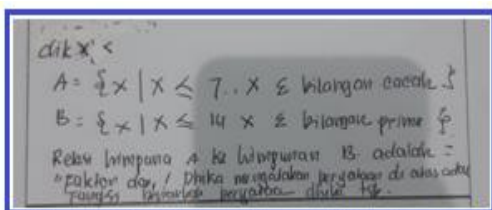 dik x; <
A = {x | x ≤ 7 .. x ε bilangan cacah}
B = {x | x ≤ 14 x ε bilangan prima}
Relasi himpuna A ke himpunan B adalah =
"Faktor dari / Dhika mengatakan pernyataan di atas